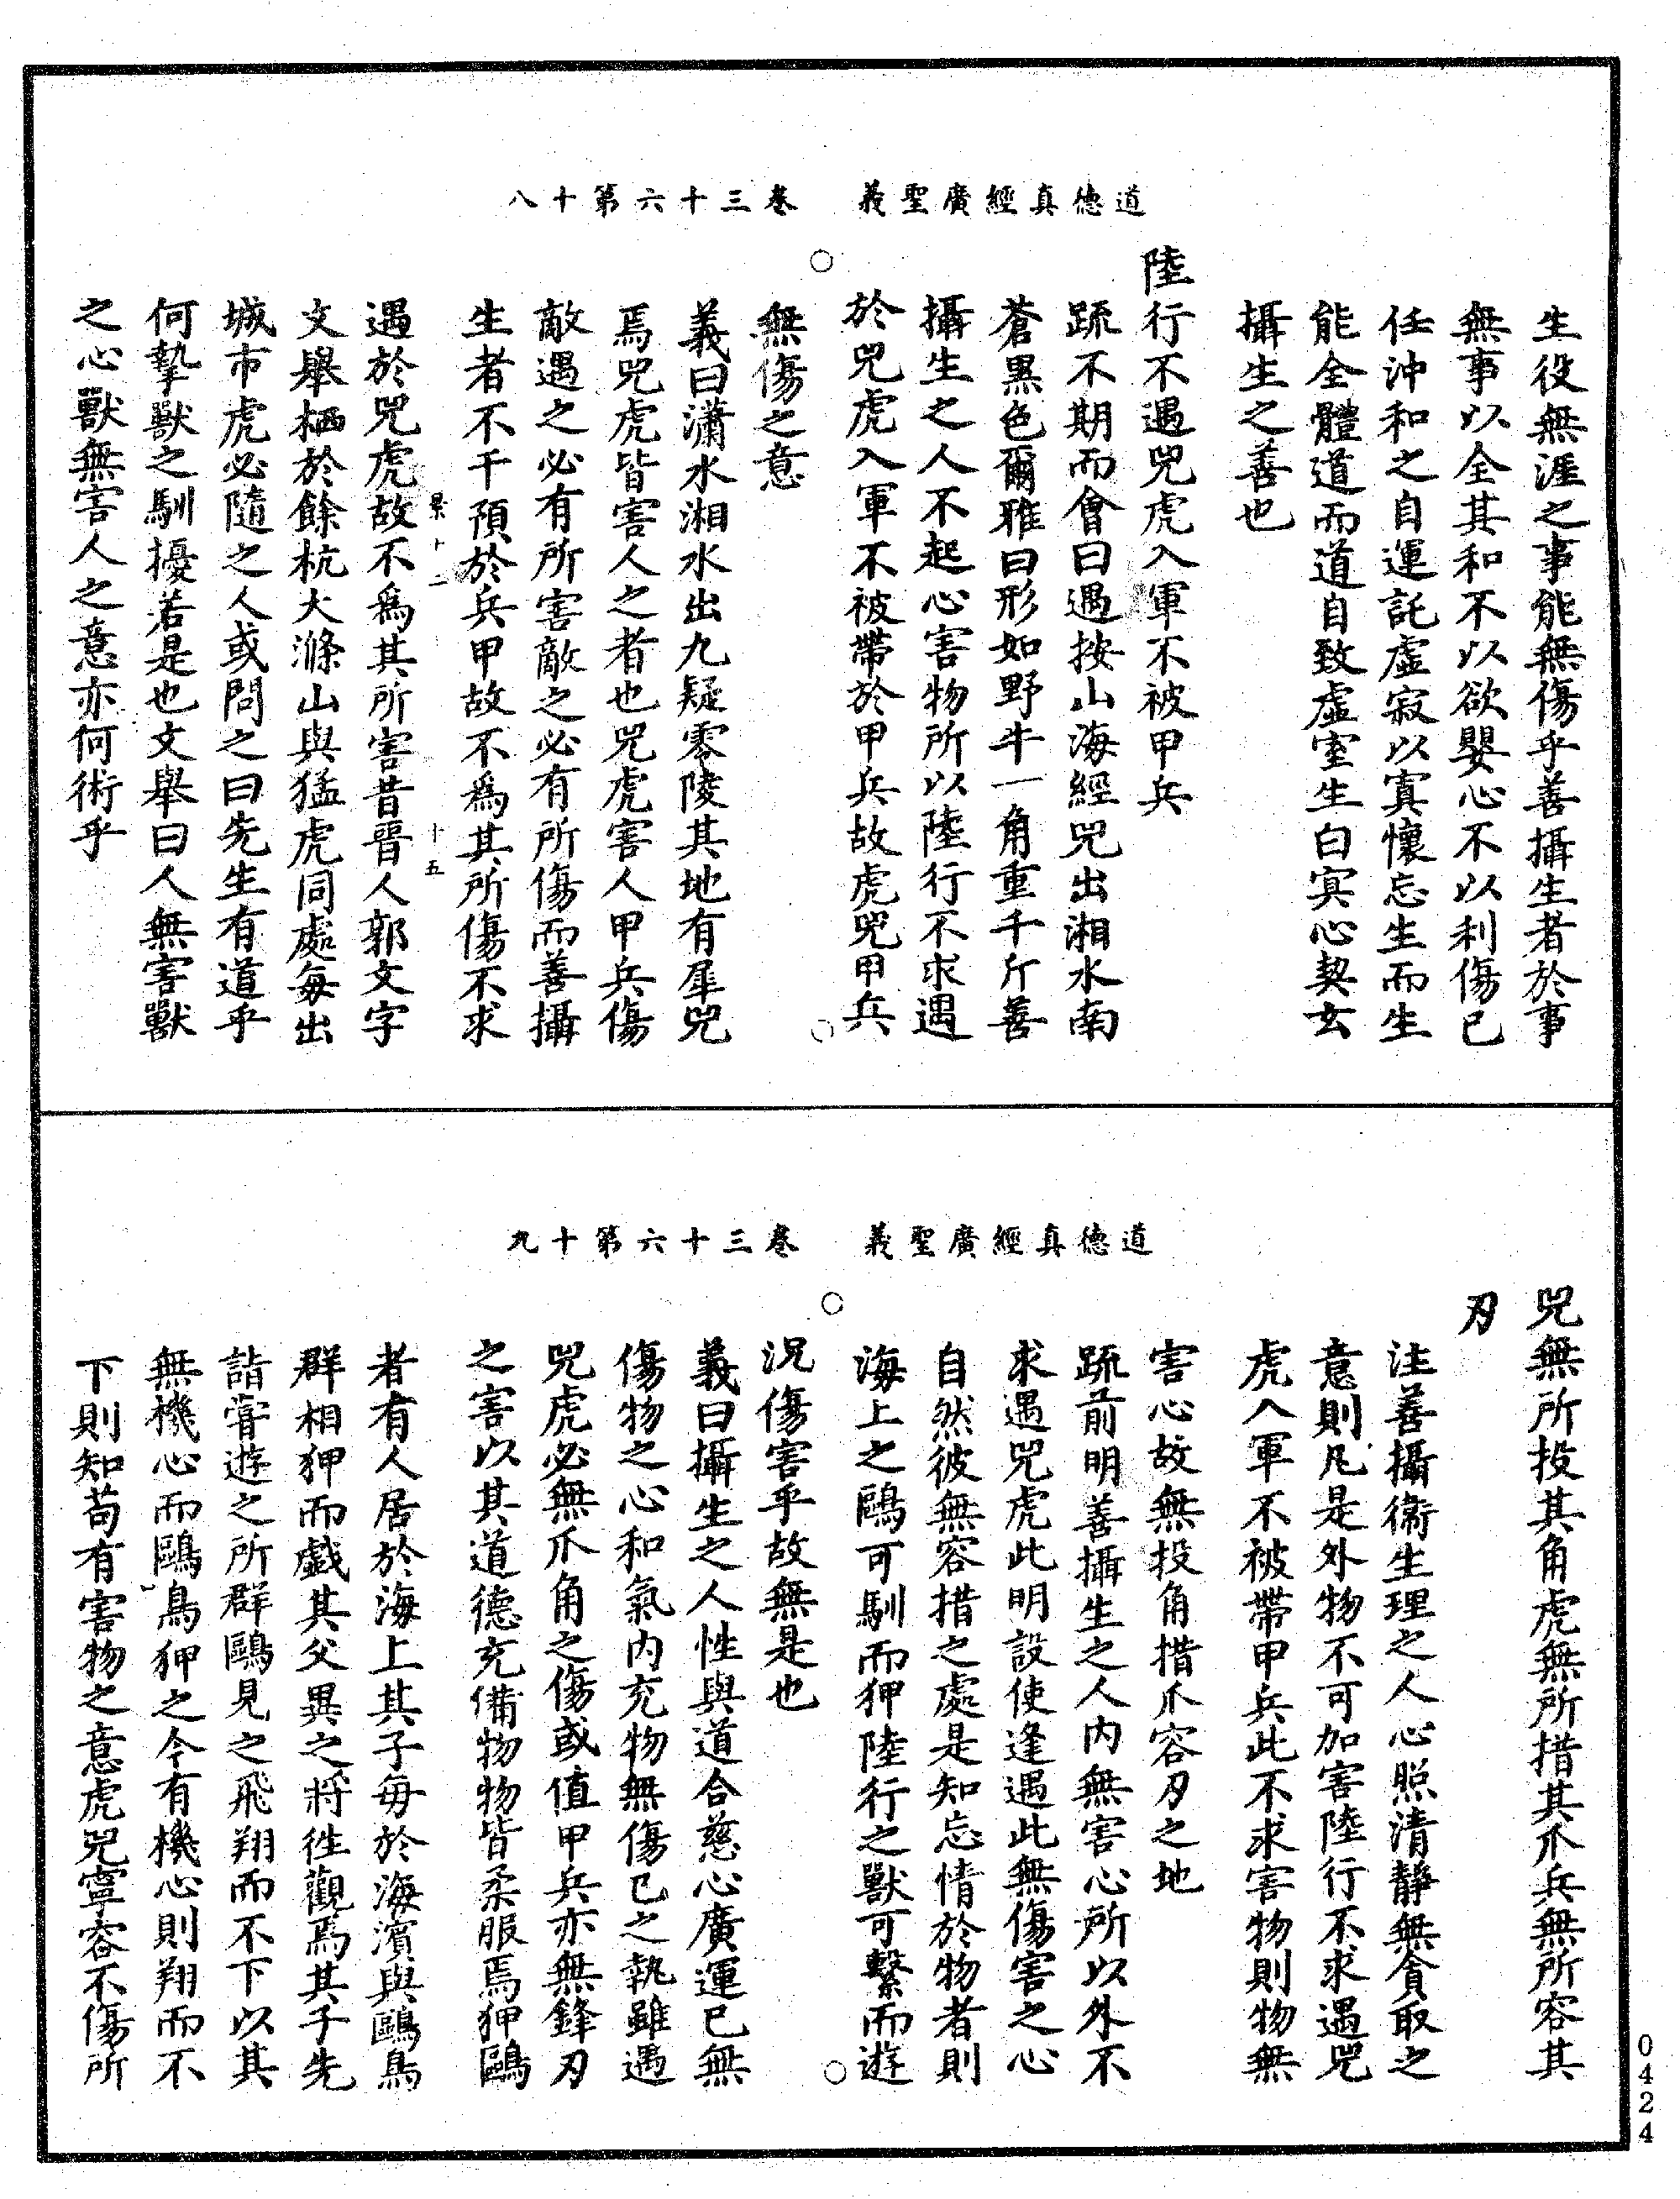 道德真經廣聖義　卷三十六第十八
生役無涯之事能無傷乎善攝生者於事
無事以全其和不以欲嬰心不以利傷已
任沖和之自運託虛寂以寘懷忘生而生
能全體道而道自致虛室生白冥心契玄
攝生之善也
陸行不遇兕虎入軍不被甲兵
疏不期而會曰遇按山海經兕出湘水南
蒼黑色爾雅曰形如野牛一角重千斤善
攝生之人不起心害物所以陸行不求遇
於兕虎入軍不被帶於甲兵故虎兕甲兵
無傷之意
義曰瀟水湘水出九疑零陵其地有犀兕
焉兕虎皆害人之者也兕虎害人甲兵傷
敵遇之必有所害敵之必有所傷而善攝
生者不干預於兵甲故不爲其所傷不求
景十二　十五
遇於兕虎故不爲其所害昔晉人郭文字
文舉栖於餘杭大滌山與猛虎同處每出
城市虎必隨之人或問之曰先生有道乎
何摯獸之馴擾若是也文舉曰人無害獸
之心獸無害人之意亦何術乎
道德真經廣聖義　卷三十六第十九
兕無所投其角虎無所措其爪兵無所容其
刃
注善攝衛生理之人心照清靜無貪取之
意則凡是外物不可加害陸行不求遇兕
虎入軍不被帶甲兵此不求害物則物無
害心故無投角措爪容刃之地
疏前明善攝生之人內無害心所以外不
求遇兕虎此明設使逢遇此無傷害之心
自然彼無容措之處是知忘情於物者則
海上之鷗可馴而狎陸行之獸可繫而遊
況傷害乎故無是也
義曰攝生之人性與道合慈心廣運已無
傷物之心和氣內充物無傷已之執雖遇
兕虎必無爪角之傷或值甲兵亦無鋒刃
之害以其道德充備物物皆柔服焉狎鷗
者有人居於海上其子每於海濱與鷗鳥
群相狎而戲其父異之將徃觀焉其子先
詣甞遊之所群鷗見之飛翔而不下以其
無機心而鷗鳥狎之今有機心則翔而不
下則知苟有害物之意虎兕寧容不傷所
0424